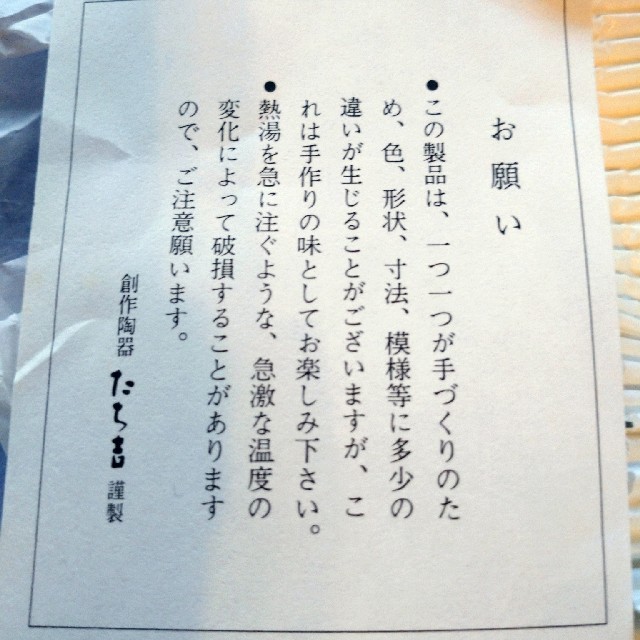 お願い
●この製品は、一つ一つが手づくりのた
め、色、形状、寸法、模様等に多少の
違いが生じることがございますが、こ
れは手作りの味としてお楽しみ下さい。
●熱湯を急に注ぐような、急激な温度の
変化によって破損することがあります
ので、ご注意願います。
創作陶器 たち吉 謹製